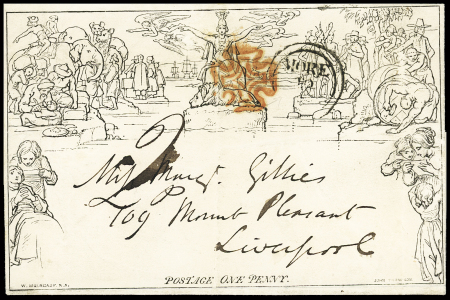 MORE
2
Miss Margt. Gillies
109 Mount Pleasant
Liverpool
POSTAGE ONE PENNY.
W. MULREADY, R.A.
JOHN THOMPSON